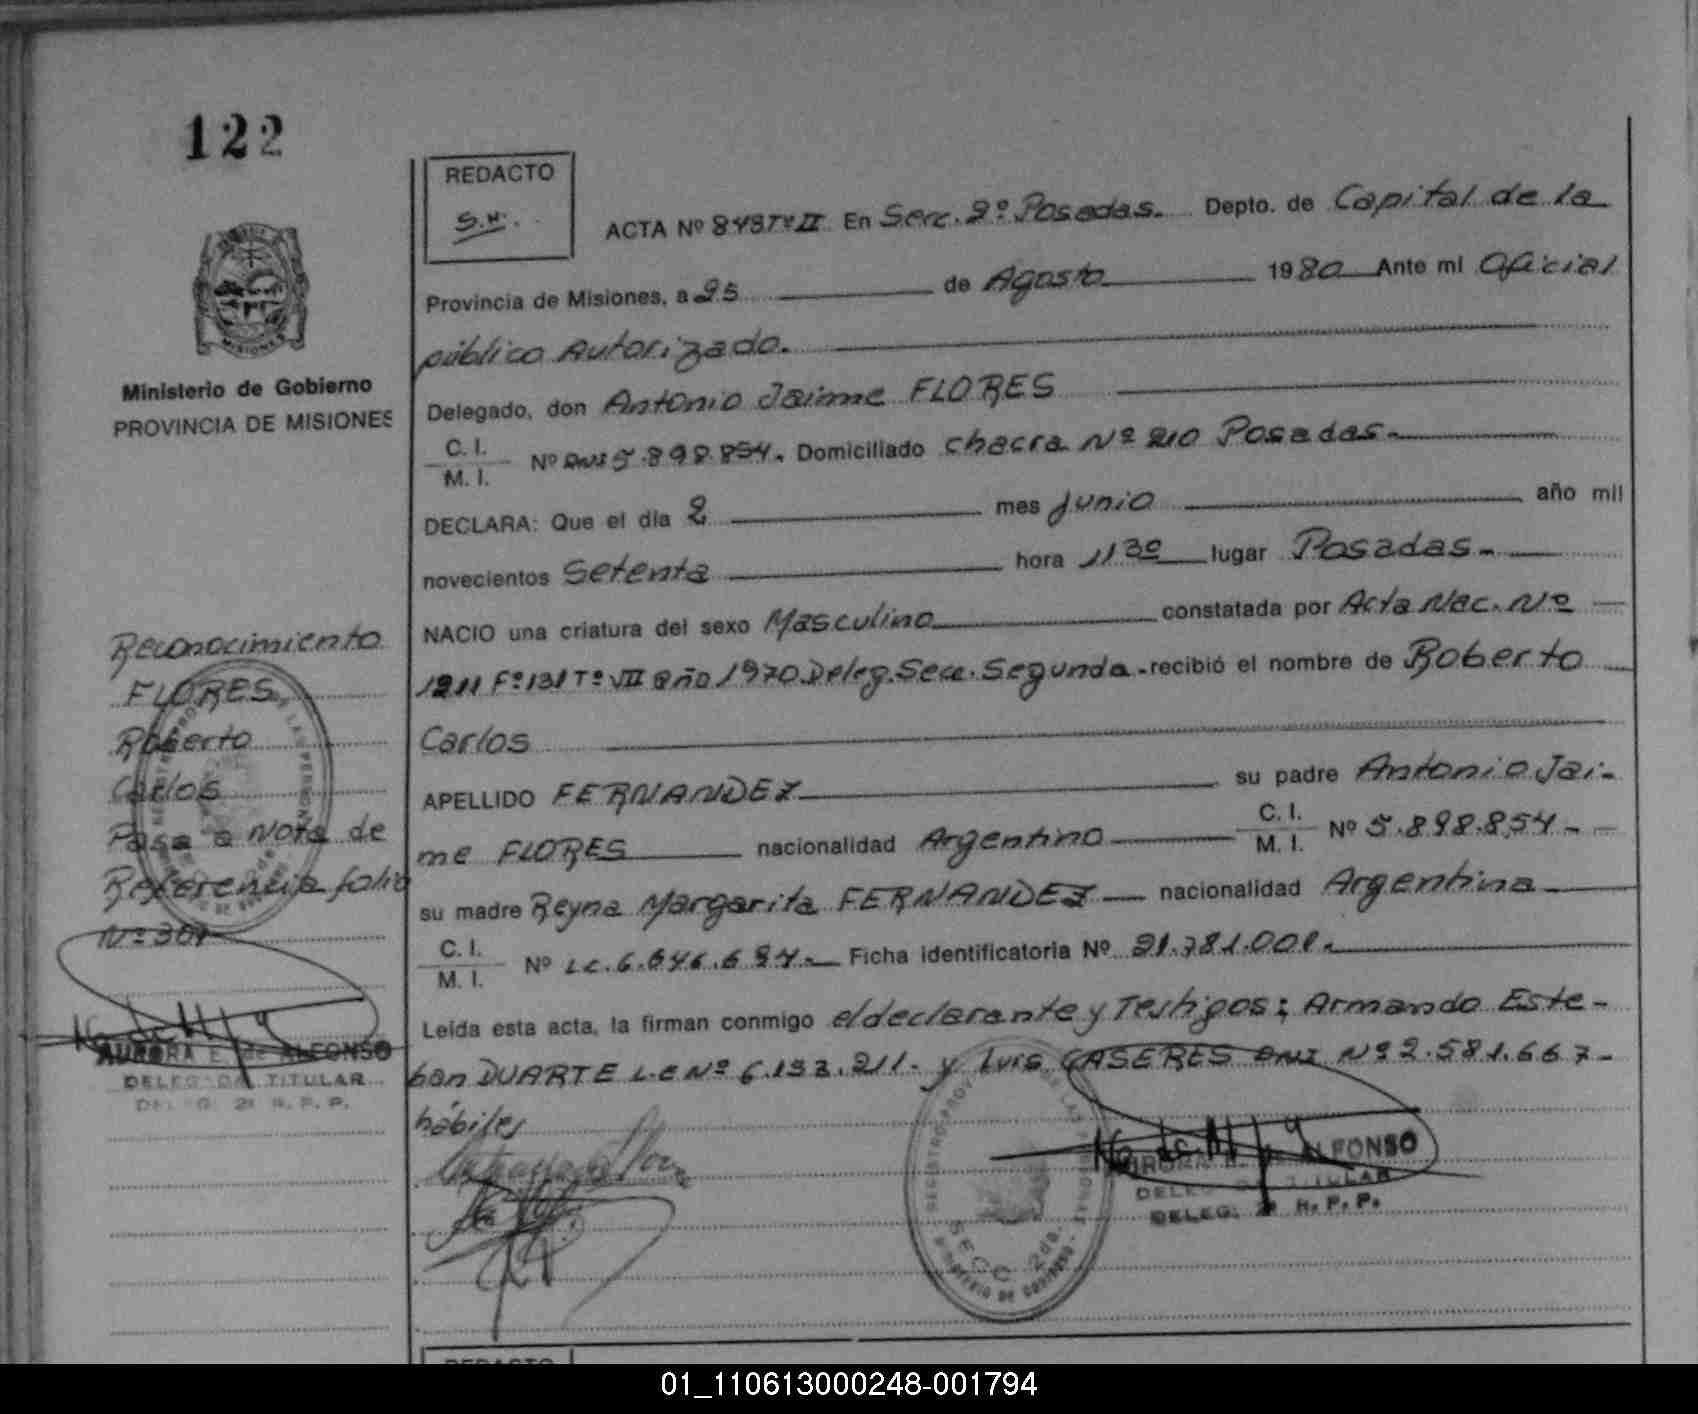 122
REDACTO
S.H.
ACTA Nº 843 Tº II En Secc. 2º Posadas. Depto. de Capital de la
Provincia de Misiones, a 25 de Agosto 1980 Ante mi Oficial
público Autorizado.
Delegado, don Antonio Jaime FLORES
C. I.
M. I. Nº DNI 5.898.854. Domiciliado chacra Nº 210 Posadas.
DECLARA: Que el día 2 mes junio año mil
novecientos Setenta hora 11 30 lugar Posadas.
NACIO una criatura del sexo Masculino constatada por Acta Nac. Nº
1211 Fº 131 Tº VII año 1970 Deleg. Secc. Segunda. recibió el nombre de Roberto
Carlos
APELLIDO FERNANDEZ su padre Antonio Jai-
me FLORES nacionalidad Argentino C. I.
M. I. Nº 5.898.854.
su madre Reyna Margarita FERNANDEZ nacionalidad Argentina
C. I.
M. I. Nº L.C. 6.646.694. Ficha identificatoria Nº 21.781.001.
Leída esta acta, la firman conmigo el declarante y Testigos: Armando Este-
ban DUARTE L.E Nº 6.133.211. y Luis CASERES DNI Nº 2.581.667.
hábiles
AURORA E. de ALFONSO
DELEGADA TITULAR
DELEG. 2ª R. P. P.
SECC. 2da.
Ministerio de Gobierno
PROVINCIA DE MISIONES
MISIONES
Reconocimiento
FLORES
Roberto
Carlos
Pasa a Nota de
Referencia folio
Nº 301
AURORA E. de ALFONSO
DELEGADA TITULAR
DELEG. 2ª R. P. P.
REDACTO
01_110613000248-001794